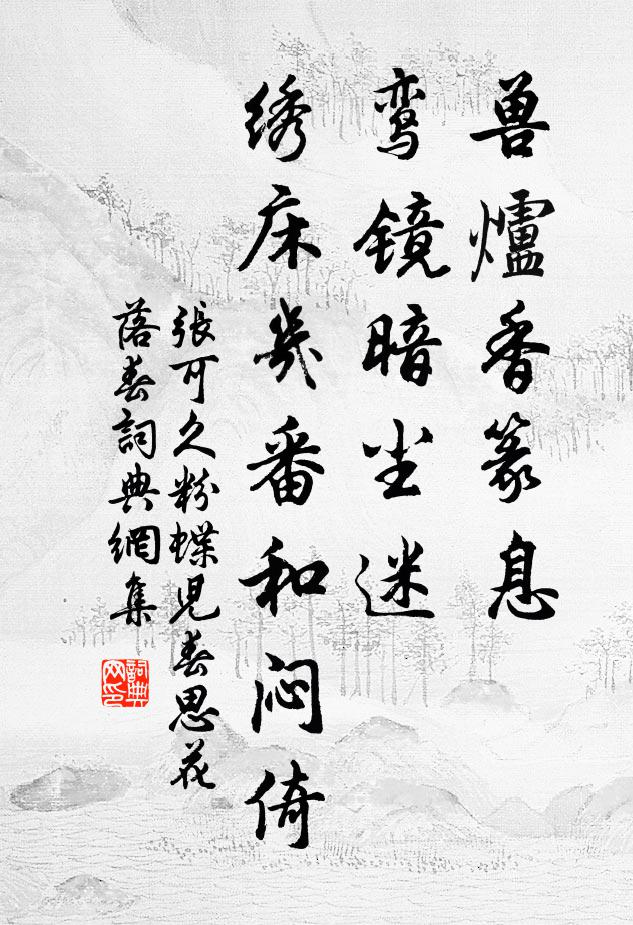 兽爐香篆息
鸾镜暗尘迷
绣床几番和闷倚
張可久粉蝶兒春思花
落春詞典網集
詞典网印